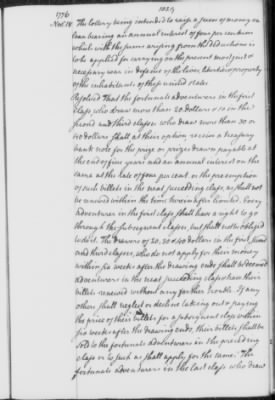 1029
1776
Nov. 18. The lottery being intended to raise a sum of money on
loan bearing an annual interest of four per centum
which with the sums arising from the deductions is
to be applied for carrying on the present most just &
necessary war in defence of the lives, liberties & property
of the inhabitants of these united states
Resolved That the fortunate adventurers in the first
class who draw more than 20 dollars & so in the
second and third classes who draw more than 30 or
40 dollars shall at their option receive a treasury
bank note for the prize or prizes drawn payable at
the end of five years and an annual interest on the
same at the rate of four per cent or the preemption
of such billets in the next succeeding class as shall not
be renewed within the time hereinafter limited. Every
adventurer in the first class shall have a right to go
through the subsequent classes, but shall not be obliged
to do it. The drawers of 20, 30 & 40 dollars in the first, second
and third classes, who do not apply for their money
within six weeks after the drawing ends shall be deemed
adventurers in the next succeeding class & have their
billets renewed without any farther trouble. If any
others shall neglect or decline taking out & paying
the price of their billets for a subsequent class within
six weeks after the drawing ends, their billets shall be
sold to the fortunate adventurers in the preceding
class or to such as shall apply for the same. The
fortunate adventurers in the last class who draw